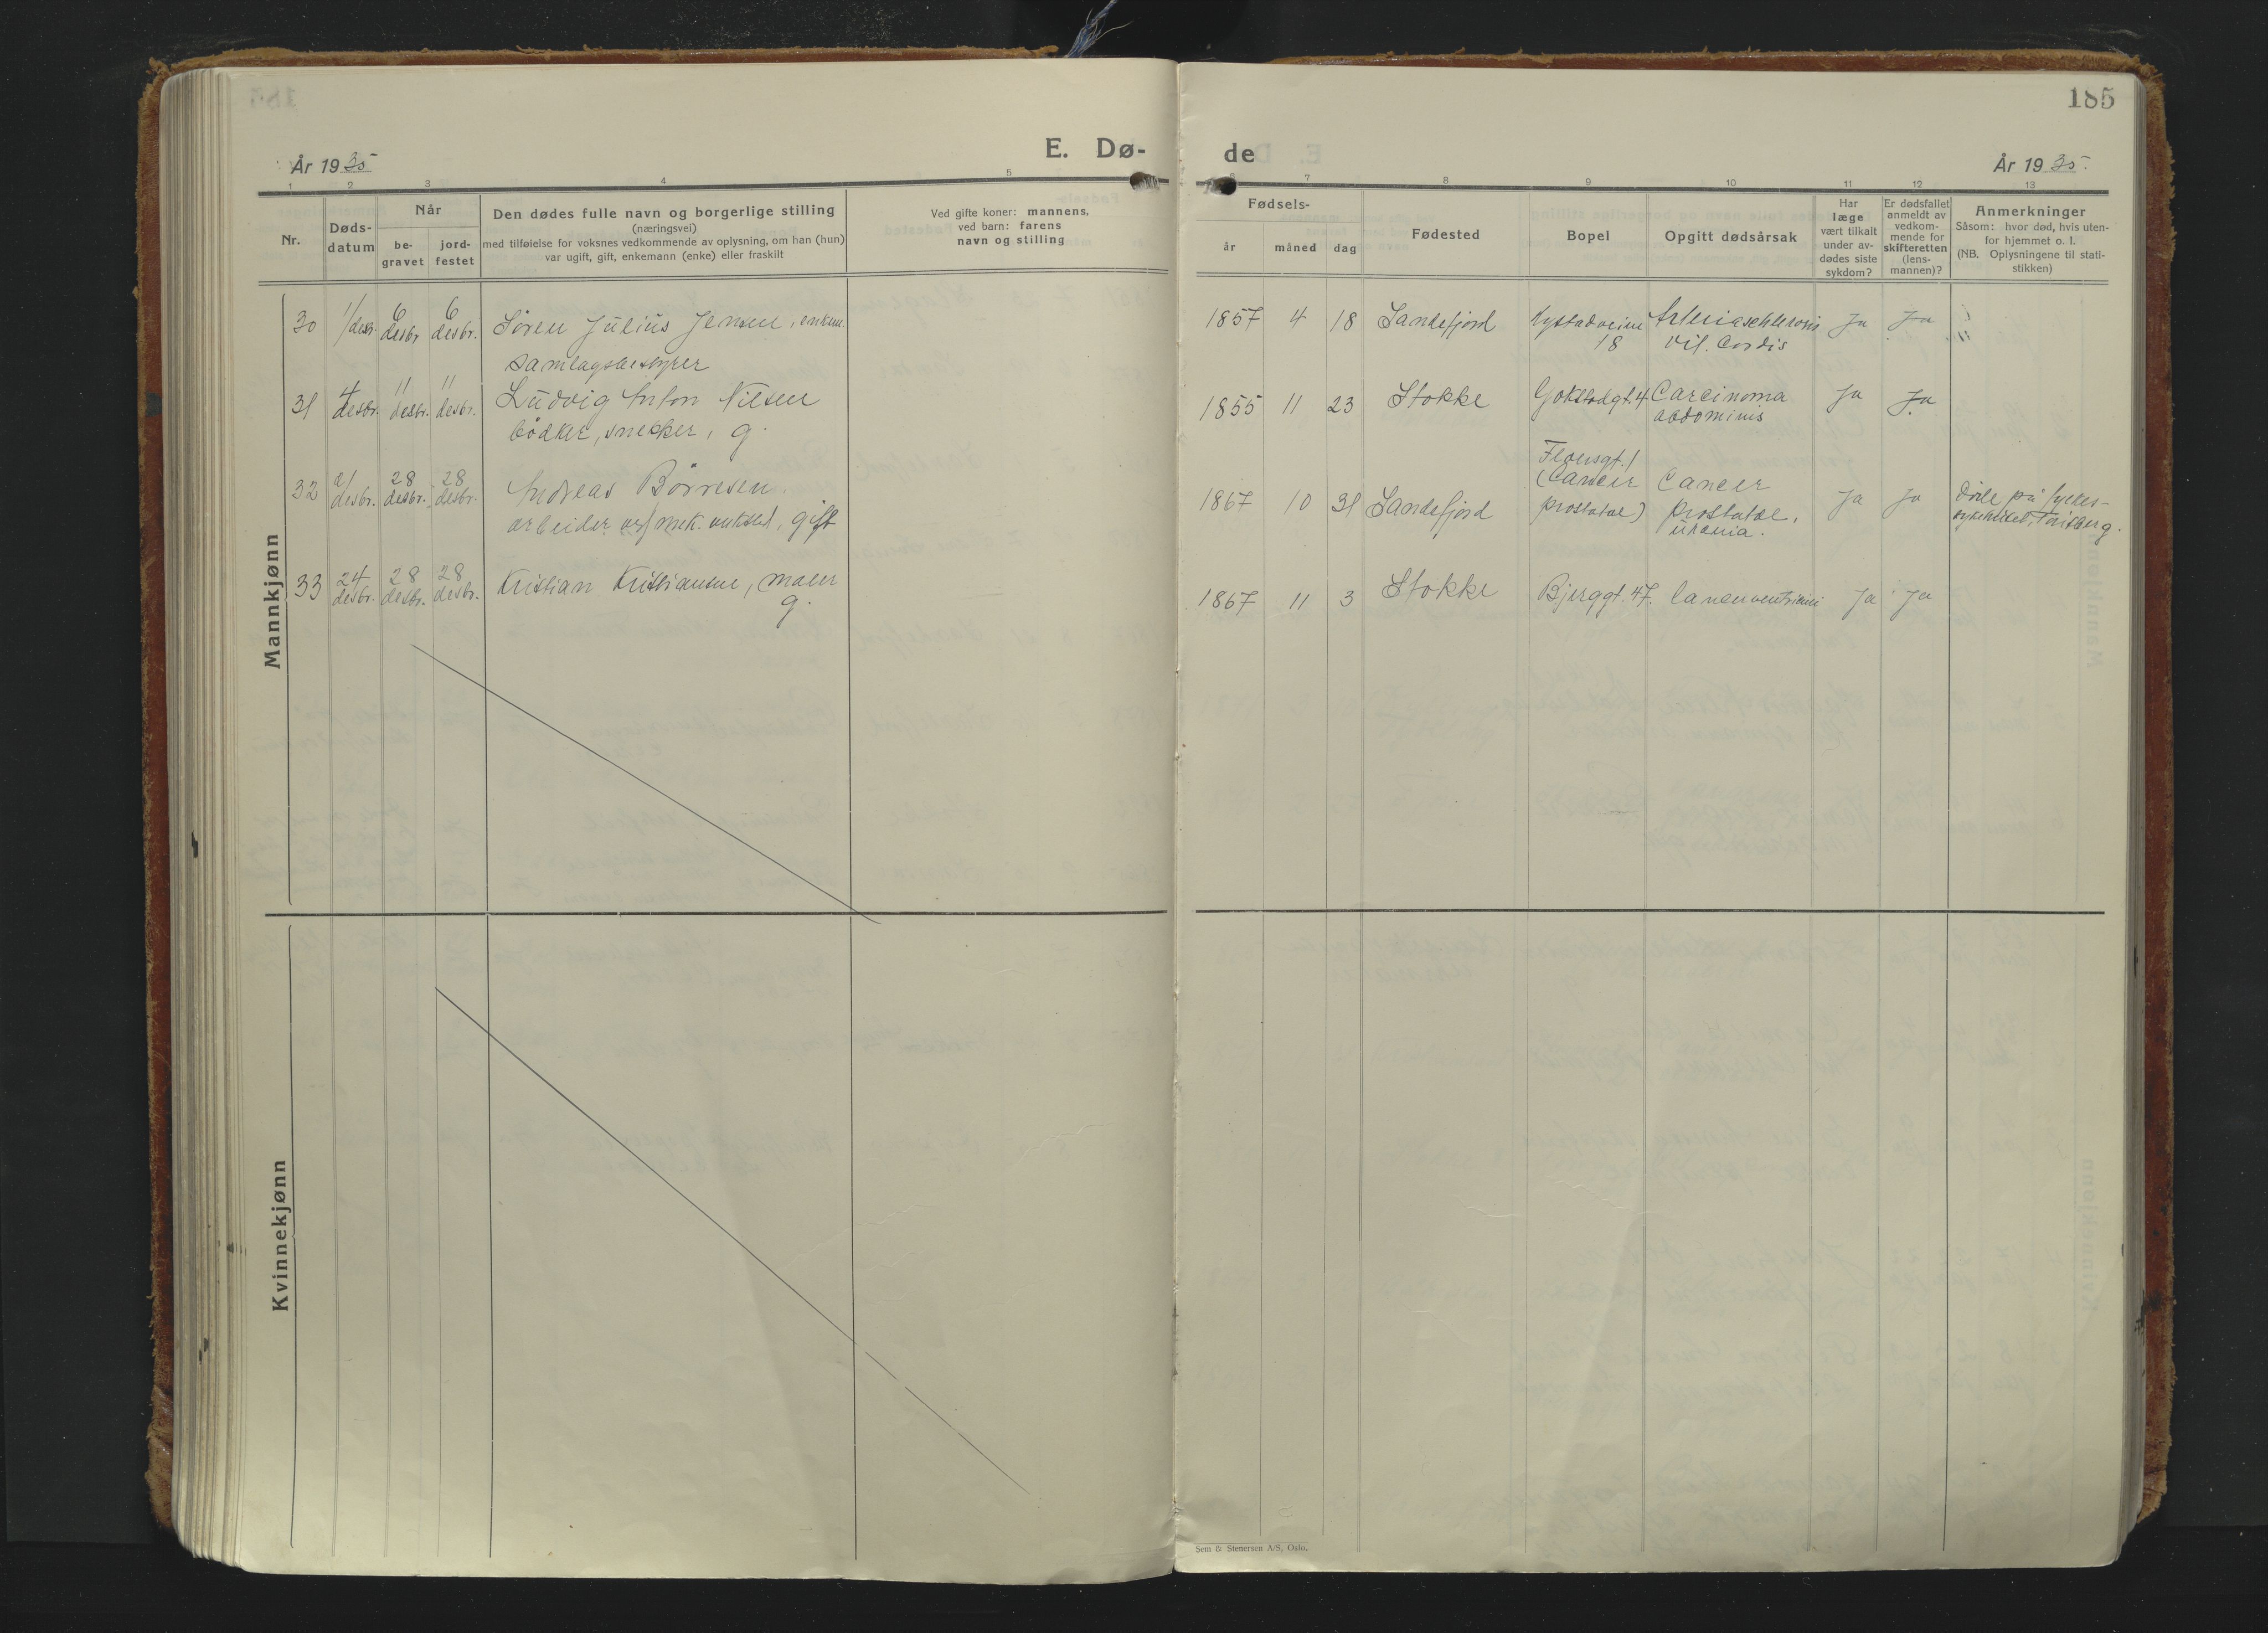 185
E. Dø- de
År 1935
År 1935.
1 2 3 4 5 7 8 9 10 11 12 13
Nr.
Døds-
datum
Når
be-
gravet
jord-
festet
Den dødes fulle navn og borgerlige stilling
(næringsvei)
med tilføielse for voksnes vedkommende av oplysning, om han (hun)
var ugift, gift, enkemann (enke) eller fraskilt
Ved gifte koner: mannens,
ved barn: farens
navn og stilling
Fødsels-
år måned dag
Fødested
Bopel
Opgitt dødsårsak
Har
læge
vært tilkalt
under av-
dødes siste
sykdom?
Er dødsfallet
anmeldt av
vedkom-
mende for
skifteretten
(lens-
mannen)?
Anmerkninger
Såsom: hvor død, hvis uten-
for hjemmet o. l.
(NB. Oplysningene til stati-
stikken)
Mannkjønn
30 1/desbr. 6 desbr. 6 desbr. Søren Julius Jensen, enkem.
samlagsbestyrer
1857 4 18 Sandefjord Nystadveien
18
Arteriaschlerosis
vit. Cordis
Ja Ja
31 4 desbr. 11 desbr. 11 desbr. Ludvig Anton Nilsen
bödker, snekker, g.
1855 11 23 Stokke Gokstadgt. 4 Carcinoma
abdominis
Ja Ja
32 21 desbr. 28 desbr. 28 desbr. Andreas Börresen.
arbeider ved mek. verksted, gift
1867 10 31 Sandefjord
(Cancer
prostatae)
Cancer
prostatae,
uræmia.
Ja Ja
Döde på fylkes-
sykehuset, Tönsberg.
33 24 desbr. 28 desbr. 28 desbr. Kristian Kristiansen, maler
g.
1867 11 3 Stokke Bjerggt. 47. Cancer ventriculi Ja Ja
Kvinnekjønn
Sem & Stenersen A/S, Oslo.